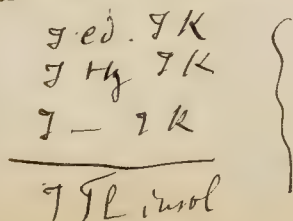 J ed. J K
J Hg J K
J — J K
J Tl insol